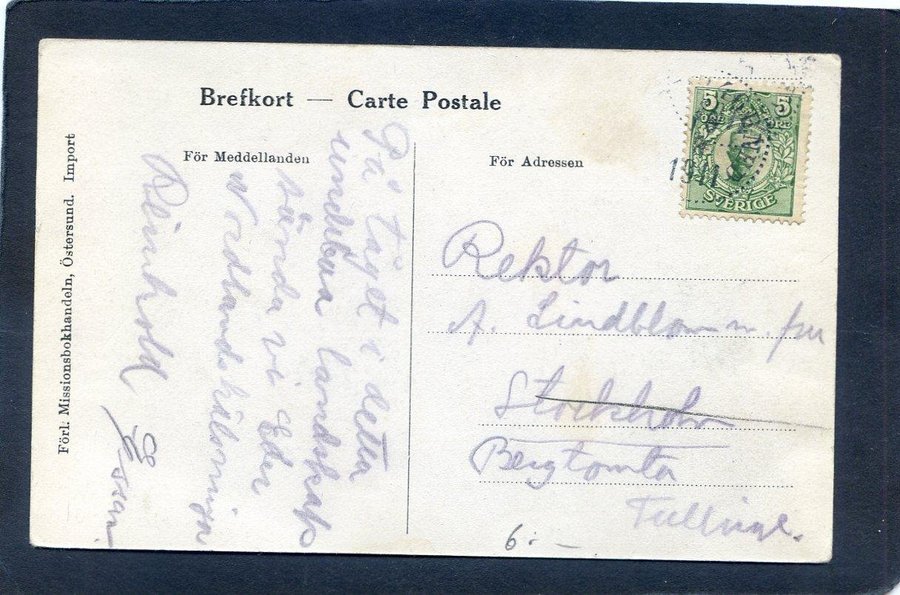 Brefkort — Carte Postale
För Meddellanden
För Adressen
Förl. Missionsbokhandeln, Östersund. Import
5 5
ÖRE
SVERIGE
1911
På tåget i detta
underbara landskap
sända vi Eder
Norrlandshälsningar
Reinhold
Rektor
A. Lindblom m. fru
Stockholm
Bergtomta
Tullinge.
6:-